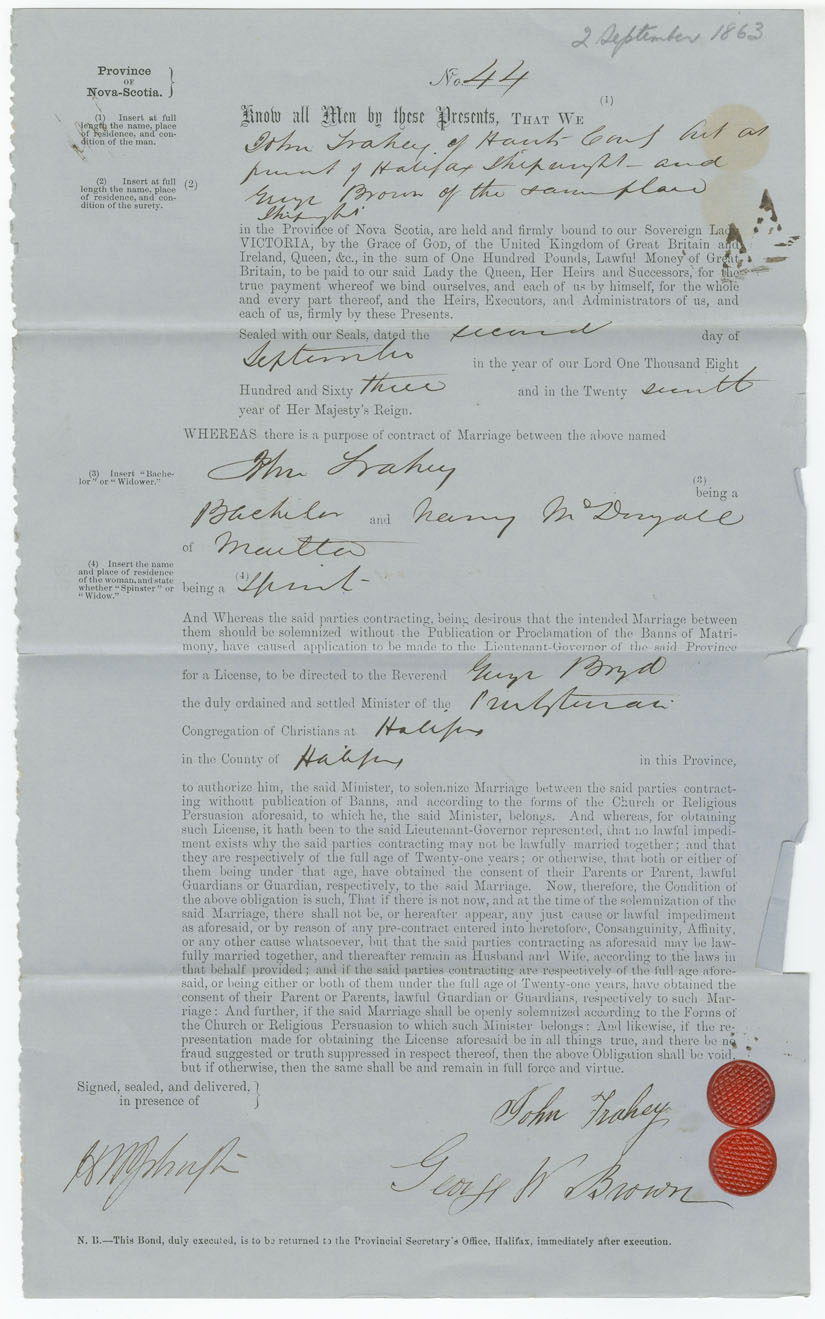 2 September 1863
Province
OF
Nova-Scotia.
No. 44
(1) Insert at full
length the name, place
of residence, and con-
dition of the man.
(2) Insert at full
length the name, place
of residence, and con-
dition of the surety.
Know all Men by these Presents, THAT WE (1)
John Frahey of Hants County but at
present of Halifax Shipwright - and
(2) George Brown of the same place
Shipwright
in the Province of Nova Scotia, are held and firmly bound to our Sovereign Lady
VICTORIA, by the Grace of GOD, of the United Kingdom of Great Britain and
Ireland, Queen, &c., in the sum of One Hundred Pounds, Lawful Money of Great
Britain, to be paid to our said Lady the Queen, Her Heirs and Successors, for the
true payment whereof we bind ourselves, and each of us by himself, for the whole
and every part thereof, and the Heirs, Executors, and Administrators of us, and
each of us, firmly by these Presents.
Sealed with our Seals, dated the second day of
September in the year of our Lord One Thousand Eight
Hundred and Sixty three and in the Twenty seventh
year of Her Majesty's Reign.
WHEREAS there is a purpose of contract of Marriage between the above named
(3) Insert "Bache-
lor" or "Widower."
John Frahey (3)
being a
Bachelor and Nancy McDougall
of Maitland
(4) Insert the name
and place of residence
of the woman, and state
whether "Spinster" or
"Widow."
being a (4) Spinst
And Whereas the said parties contracting, being desirous that the intended Marriage between
them should be solemnized without the Publication or Proclamation of the Banns of Matri-
mony, have caused application to be made to the Lieutenant-Governor of the said Province
for a License, to be directed to the Reverend George Boyd
the duly ordained and settled Minister of the Presbyterian
Congregation of Christians at Halifax
in the County of Halifax in this Province,
to authorize him, the said Minister, to solemnize Marriage between the said parties contract-
ing without publication of Banns, and according to the forms of the Church or Religious
Persuasion aforesaid, to which he, the said Minister, belongs. And whereas, for obtaining
such License, it hath been to the said Lieutenant-Governor represented, that no lawful impedi-
ment exists why the said parties contracting may not be lawfully married together; and that
they are respectively of the full age of Twenty-one years; or otherwise, that both or either of
them being under that age, have obtained the consent of their Parents or Parent, lawful
Guardians or Guardian, respectively, to the said Marriage. Now, therefore, the Condition of
the above obligation is such, That if there is not now, and at the time of the solemnization of the
said Marriage, there shall not be, or hereafter appear, any just cause or lawful impediment
as aforesaid, or by reason of any pre-contract entered into heretofore, Consanguinity, Affinity,
or any other cause whatsoever, but that the said parties contracting as aforesaid may be law-
fully married together, and thereafter remain as Husband and Wife, according to the laws in
that behalf provided; and if the said parties contracting are respectively of the full age afore-
said, or being either or both of them under the full age of Twenty-one years, have obtained the
consent of their Parent or Parents, lawful Guardian or Guardians, respectively to such Mar-
riage: And further, if the said Marriage shall be openly solemnized according to the Forms of
the Church or Religious Persuasion to which such Minister belongs: And likewise, if the re-
presentation made for obtaining the License aforesaid be in all things true, and there be no
fraud suggested or truth suppressed in respect thereof, then the above Obligation shall be void,
but if otherwise, then the same shall be and remain in full force and virtue.
Signed, sealed, and delivered,
in presence of
John Frahey
George W Brown
N. B.—This Bond, duly executed, is to be returned to the Provincial Secretary's Office, Halifax, immediately after execution.